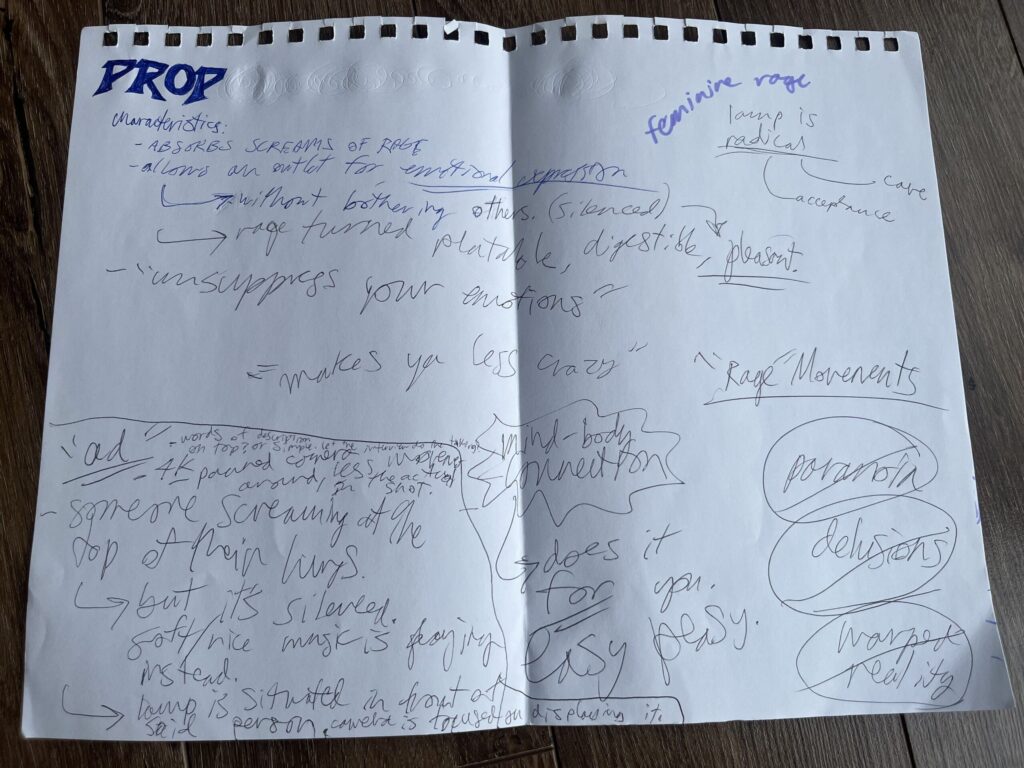 PROP
feminine rage
characteristics:
- ABSORBS SCREAMS OF RAGE
- allows an outlet for emotional expression
without bothering others. (silenced)
rage turned platable, digestible, pleasant.
- "unsuppress your emotions"
= "makes ya less crazy"
lamp is
radical
care
acceptance
"ad"
- words of description
on top? or simple. let the
4K panned camera
around, less
in shot.
- someone screaming at the
top of their lungs.
but it's silenced.
soft/nice music is playing
instead.
lamp is situated in front of
said person. camera is focused on displaying it.
mind-body
connection
does it
for you.
easy peasy.
"Rage" Movements
paranoia
delusions
warped
reality